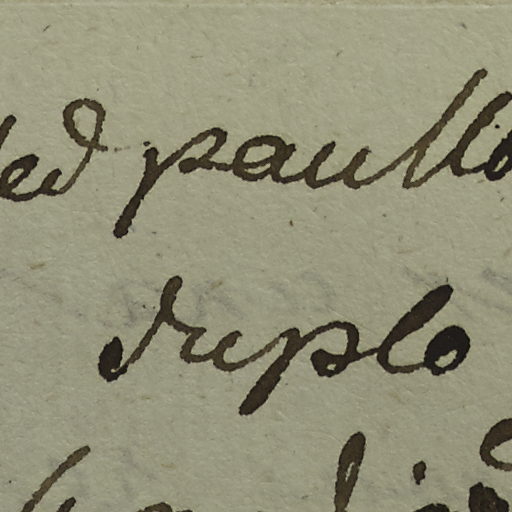 sed paullo
duplo